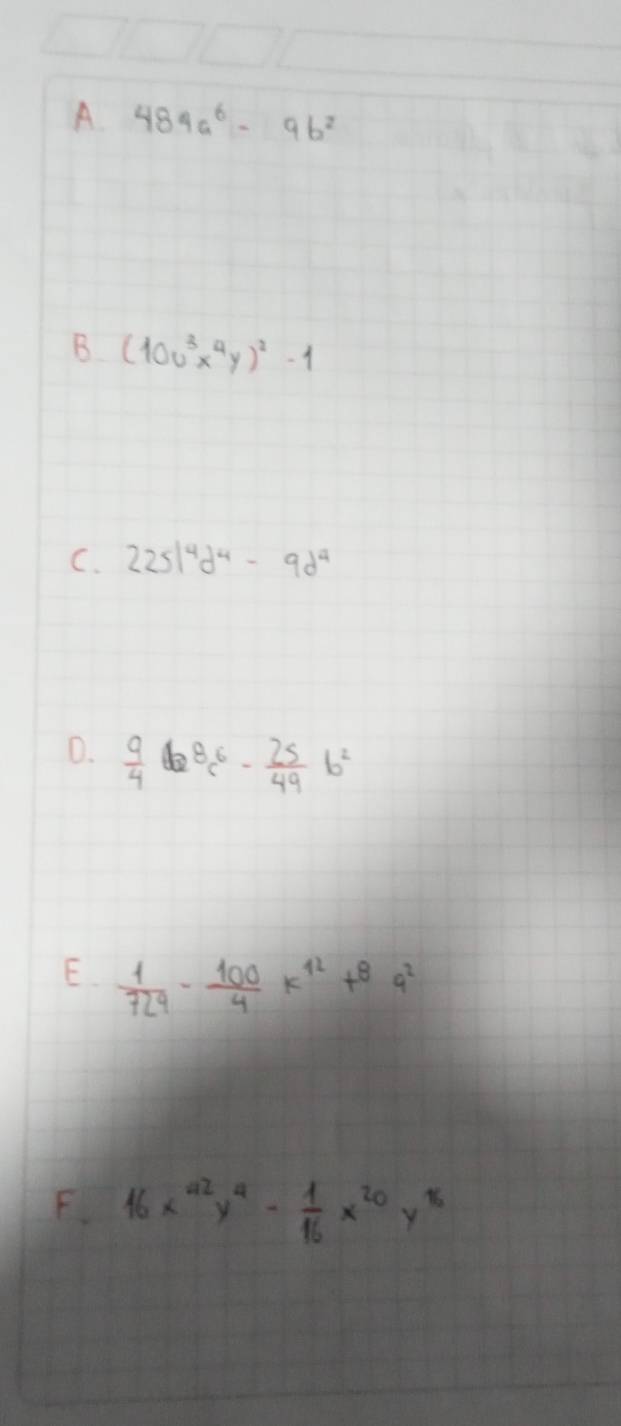 A. 484a⁶ - 9b²
B. (10u³x⁴y)² - 1
C. 225l⁴d⁴ - 9d⁴
D. 9/4 ⁸c⁶ - 25/49 b²
E. 1/729 - 100/4 k¹² t⁸ q²
F. 16x⁴²y⁴ - 1/16 x²⁰ y¹⁶